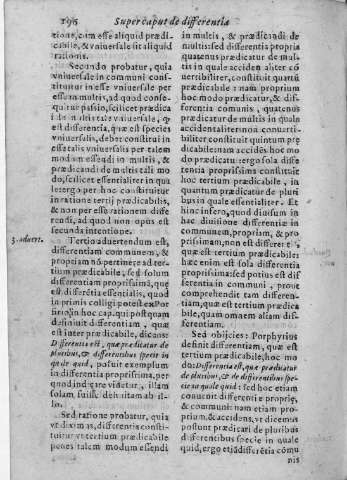 196 Super caput de differentia
tione, cum esse aliquid prædi-
cabile, & vniuersale sit aliquid
rationis.
Secundo probatur, quia
vniuersale in communi consti-
tuitur in esse vniuersalis per
esse in multis, ad quod conse-
quitur passio, scilicet prædica
ri de multis tale vniuersale, q̃
est differentia, quæ est species
vniuersalis, debet constitui in
esse talis vniuersalis per talem
modum essendi in multis, &
prædicandi de multis tali mo
do, scilicet essentialiter in qua
le: ergo per hoc constituitur
in ratione tertij prædicabilis,
& non per esse rationem diffe
rendi, ad quod non opus est
secunda intentione.
3. aduert. Tertio aduertendum est,
differentiam communem, &
propriam nõ pertinere ad ter-
tium prædicabile, sed solum
differentiam propriissimã, quę
est differẽtia essentialis, quod
in primis colligi potest ex Por
firio in hoc cap. qui postquam
definiuit differentiam, quæ
est inter prædicabile, dicens:
Differentia est, quæ prædicatur de
pluribus, & differentibus specie in
quale quid, posuit exemplum
in differentia propriissima, per
quod indicare videtur, illam
solam, fuisse definitam ab il-
lo.
Sed ratione probatur, quia
vt diximus, differentia consti-
tuitur vt tertium prædicabile
penes talem modum essendi
in multis, & prædicandi de
multis: sed differentia propria
quatenus prædicatur de mul-
tis in quale accidens aliter cõ
uertibiliter, constituit quartũ
prædicabile: nam proprium
hoc modo prædicatur, & dif-
ferentia comunis, quatenus
prædicatur de multis in quale
accidentaliter non conuerti-
biliter constituit quintum præ
dicabile: nam accidens hoc mo
do prædicatur: ergo sola diffe
rentia propriissima constituit
hoc tertium prædicabile, in
quantum prædicatur de pluri
bus in quale essentialiter. Et
hinc infero, quod diuisum in
hac diuisione differentiæ in
communem, propriam, & pro
priissimam, non est differentia,
quæ est tertium prædicabile:
hæc enim est sola differentia
propriissima: sed potius est dif
ferentia in communi, prout
comprehendit tam differen-
tiam, quæ est tertium prædica
bile, quam etiam alias differen
tias.
Sed obijcies: Porphyrius
definit differentiam, quæ est
tertium prædicabile, hoc mo
do: Differentia est, quæ prædicatur
de pluribus, & de differentibus spe-
cie in quale quid: sed hoc etiam
conuenit differentiæ propriæ,
& communi: nam etiam pro-
prium, & accidens, vt dicemus
possunt prædicari de pluribus
differentibus specie in quale
quid, ergo etiã differẽtia cõmu
nis